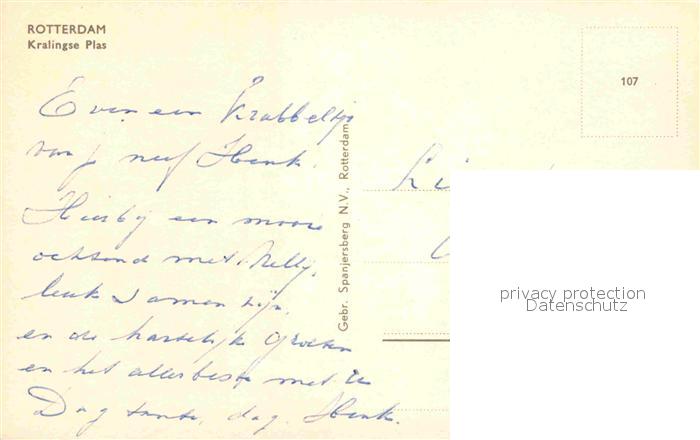 ROTTERDAM
Kralingse Plas
107
Even een Krabbeltje
van je neef Henk.
Hierbij een mooie
ochtend met Nelly.
leuk samen zijn.
en de hartelijke groeten
en het allerbeste met U
Dag tante, dag. Henk.
Gebr. Spanjersberg N.V., Rotterdam
privacy protection
Datenschutz